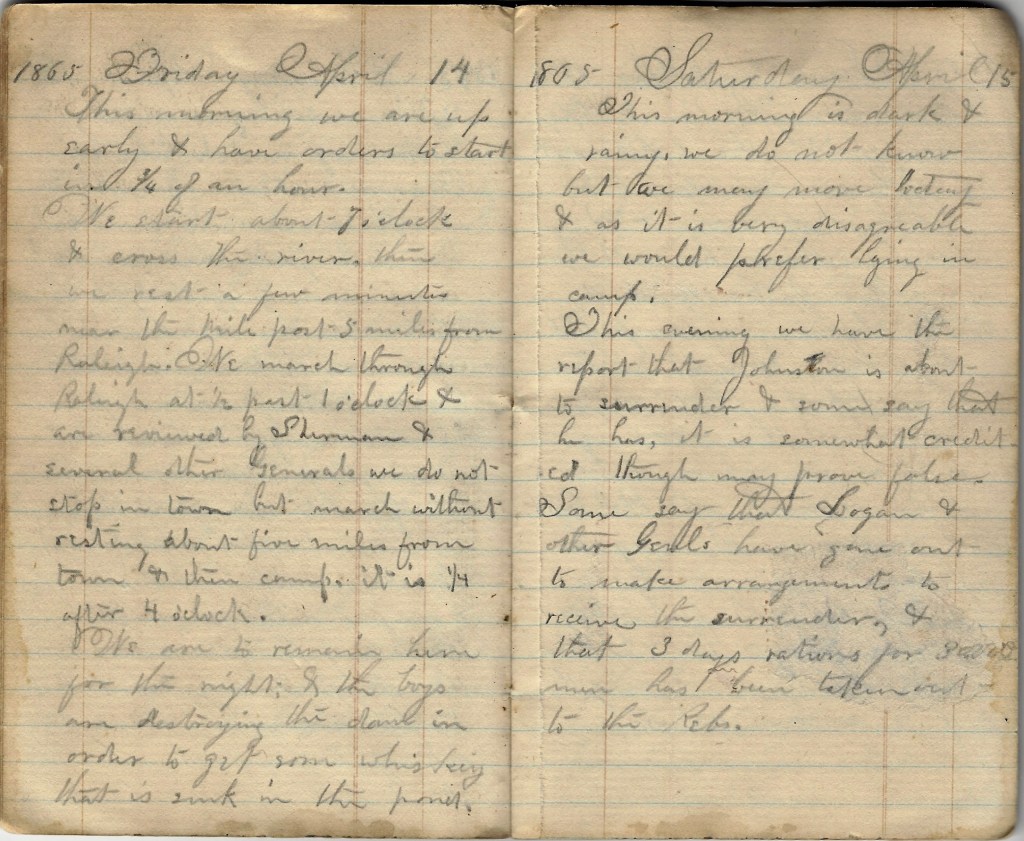 1865 Friday April 14
This morning we are up
early & have orders to start
in 3/4 of an hour.
We start about 7 o'clock
& cross the river. then
we rest a few minutes
near the mile post 5 miles from
Raleigh. We march through
Raleigh at 1/2 past 1 o'clock &
are reviewed by Sherman &
several other Generals we do not
stop in town but march without
resting about five miles from
town & then camp. it is 1/4
after 4 o'clock.
We are to remain here
for the night; & the boys
are destroying the dam in
order to get some whiskey
that is sunk in the pond.
1865 Saturday April 15
This morning is dark &
rainy. we do not know
but we may move today
& as it is very disagreeable
we would prefer lying in
camp.
This evening we have the
report that Johnston is about
to surrender & some say that
he has, it is somewhat credit-
ed though may prove false.
Some say that Logan &
other Genls have gone out
to make arrangements to
receive the surrender, &
that 3 days rations for
men has been taken out
to the Rebs.